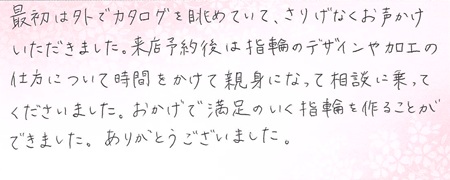 最初は外でカタログを眺めていて、さりげなくお声かけ
いただきました。来店予約後は指輪のデザインや加工の
仕方について時間をかけて親身になって相談に乗って
くださいました。おかげで満足のいく指輪を作ることが
できました。ありがとうございました。